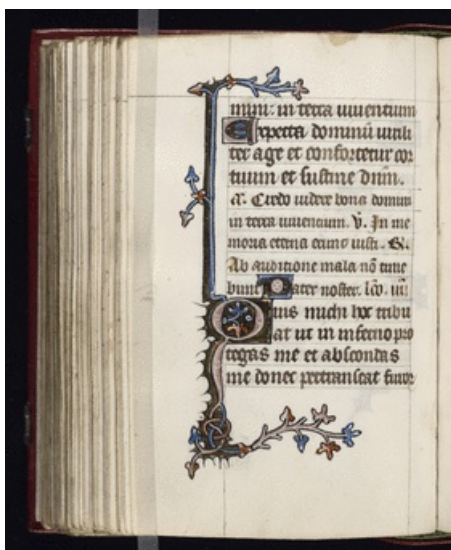 mini: in terra viventium
Expecta dominū virili
ter age et confortetur cor
tuum et sustine dnm̄.
a. Credo videre bona domini
in terra viventium. V. In me
moria eterna erunt iusti. R.
Ab auditione mala nō time
bunt Pater noster. lcō. iiij
Quis michi hoc tribu
at ut in inferno pro
tegas me et abscondas
me donec pertranseat furor